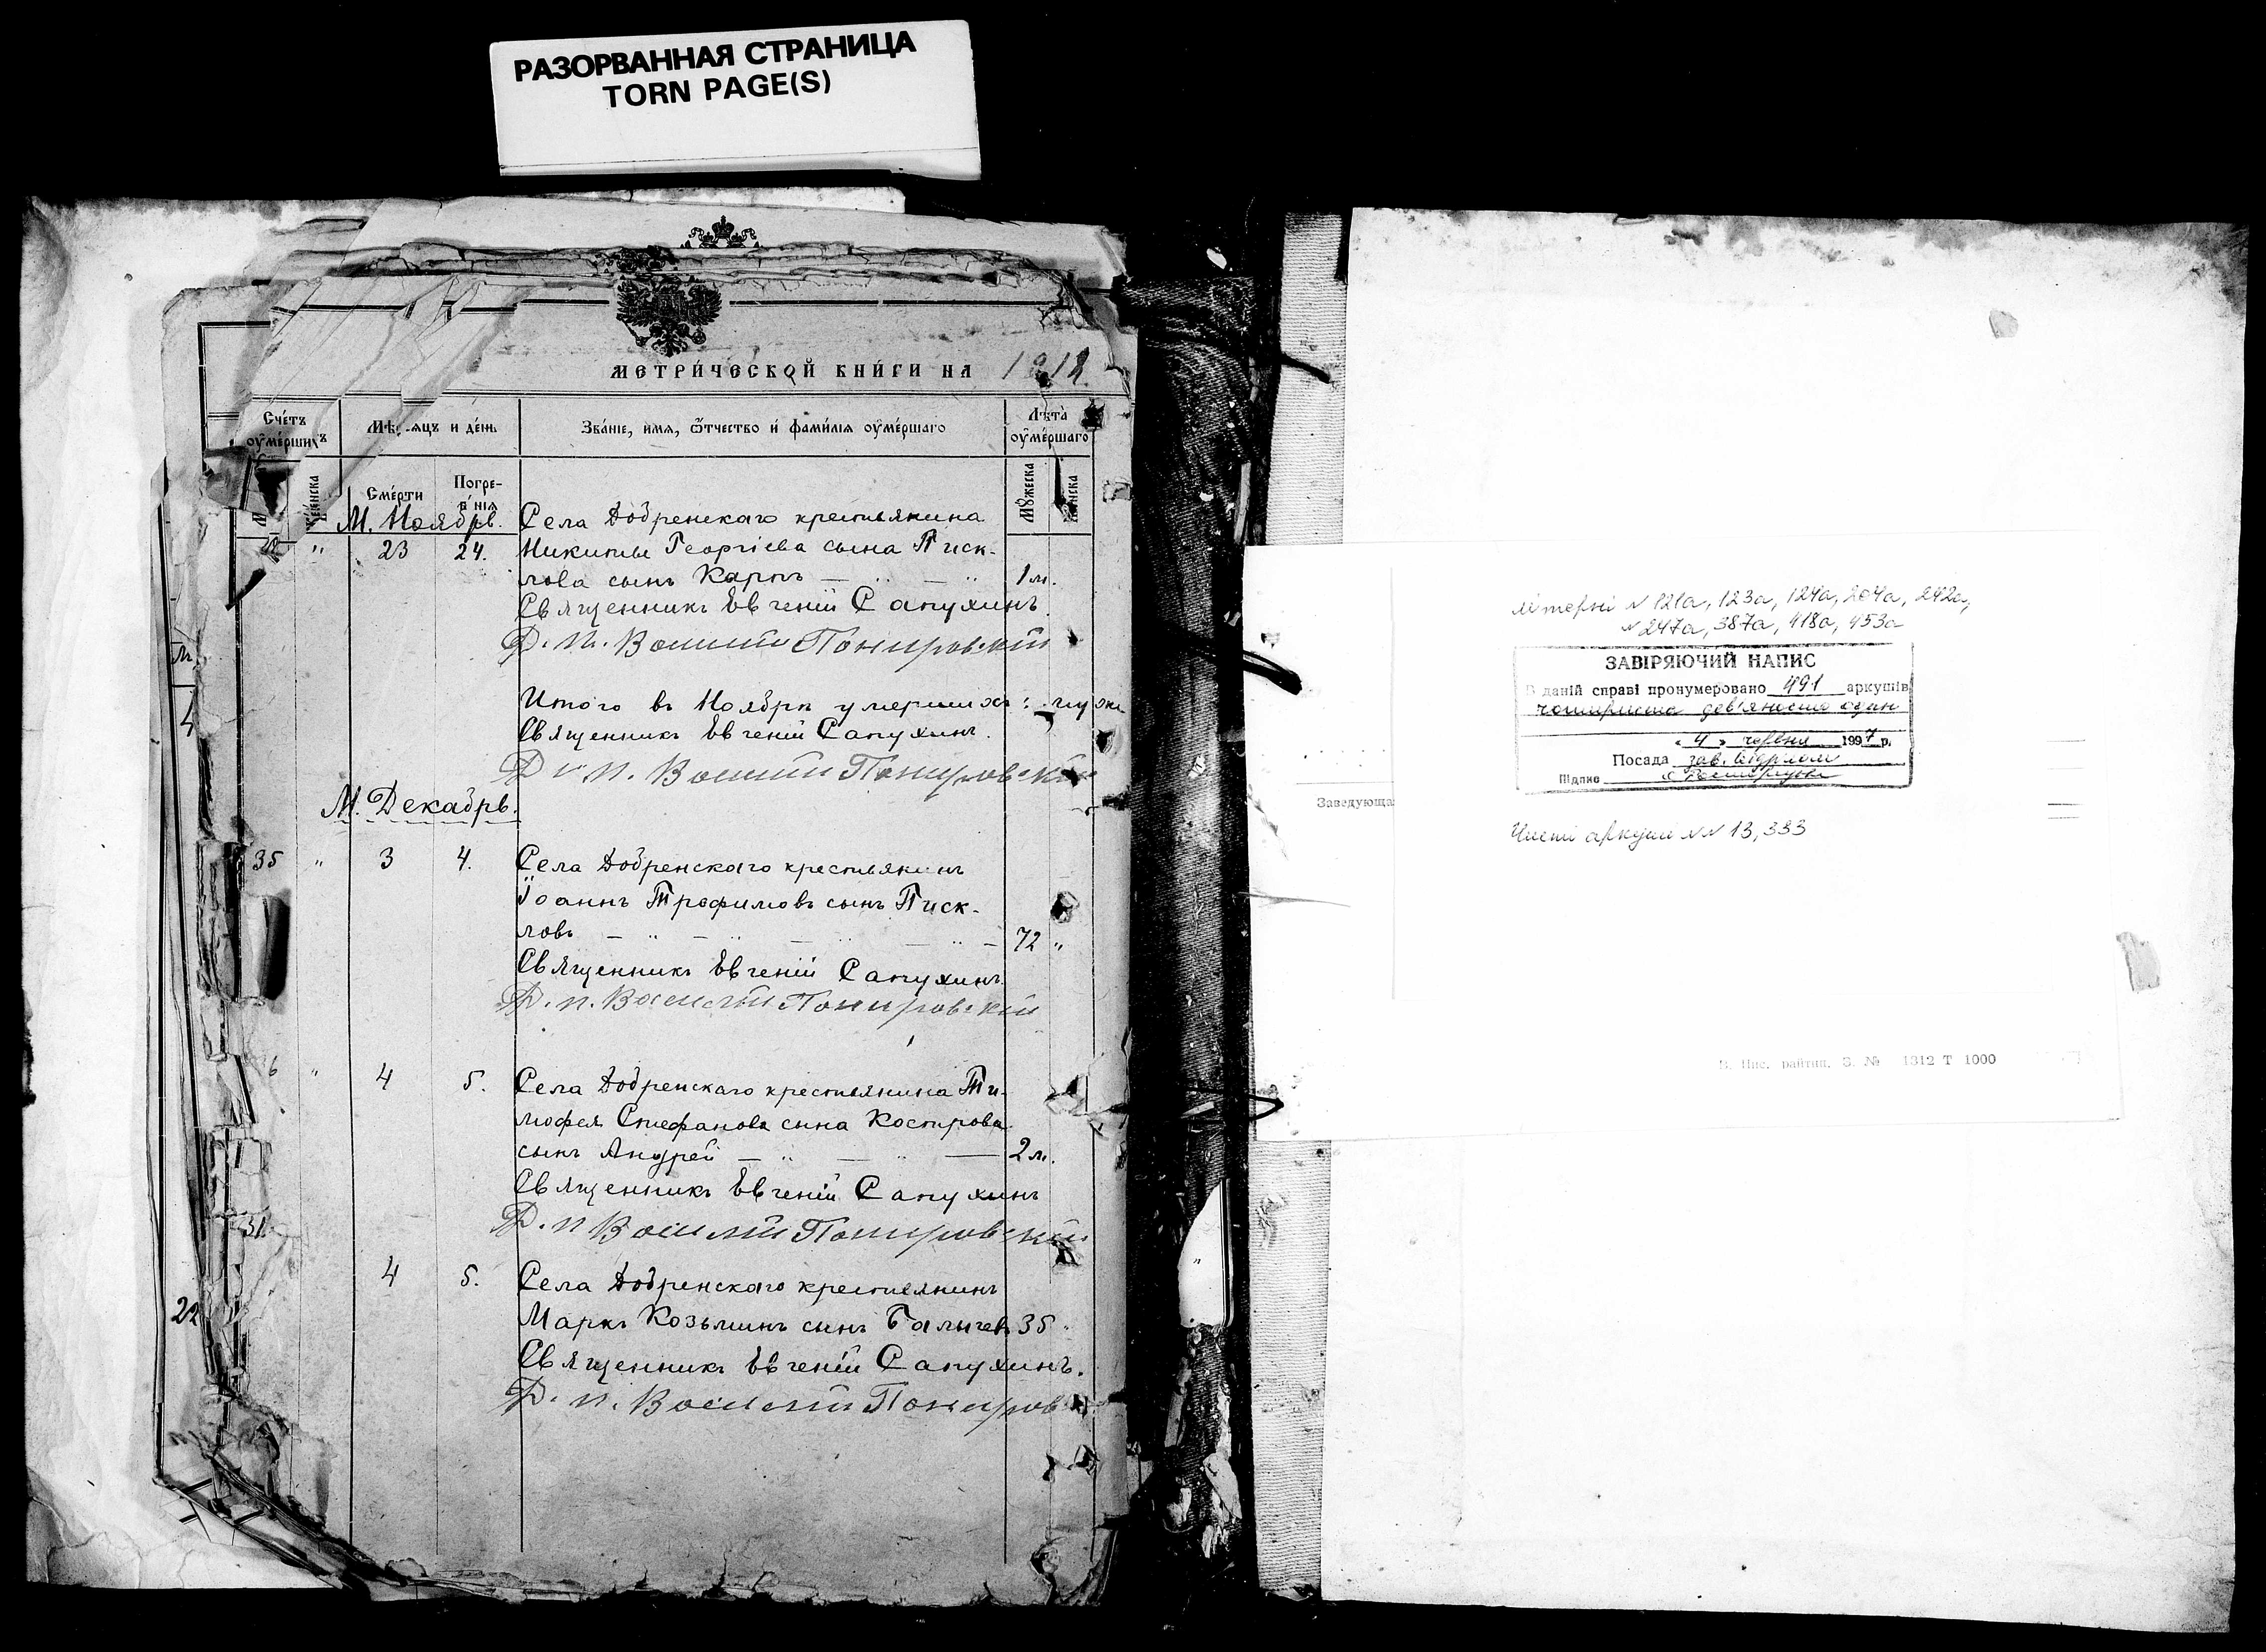 РАЗОРВАННАЯ СТРАНИЦА
TORN PAGE(S)
МЕТРИ́ЧЕСКОЙ КНИ́ГИ НА 1912
Сче́тъ оу҆ме́ршихъ
Мѣсяцъ и де́нь
Зва́нїе, и҆мя, ѿтчество и҆ фами́лїя оу҆ме́ршаго
Лѣта̀ оу҆ме́ршаго
Же́нска
Сме́рти
Погребе́нїя
Мꙋжеска
Женска
М. Ноябрь.
Села Добренскаго крестьянина
" 23 24. Никиты Георгіева сына Писк-
лова сынъ Карпъ — " — " 1 м.
Священникъ Евгеній Сапухинъ
Д. п. Василій
Итого въ Ноябрѣ умершихъ:
Священникъ Евгеній Сапухинъ.
Д п. Василій
М. Декабрь.
35 " 3 4. Села Добренскаго крестьянинъ
Іоаннъ Трофимовъ сынъ Писк-
ловъ — " — " — " — " — 72 "
Священникъ Евгеній Сапухинъ
Д. п. Василій
6 " 4 5. Села Добренскаго крестьянина Ти-
мофея Стефанова сына Кострова
сынъ Андрей — " — " — 2 м.
Священникъ Евгеній Сапухинъ
Д. п Василій
4 5. Села Добренскаго крестьянинъ
Маркъ Козьминъ сынъ 35 "
Священникъ Евгеній Сапухинъ.
Д. п. Василій
22
літерні N 121а, 123а, 124а, 204а, 242а,
N 247а, 387а, 418а, 453а
ЗАВІРЯЮЧИЙ НАПИС
В даній справі пронумеровано 491 аркушів
чотириста дев'яносто один
« 4 » червня 1997 р.
Посада зав. відділом
Підпис
Заведующа
Чисті аркуші NN 13, 333
З. № 1312 Т 1000